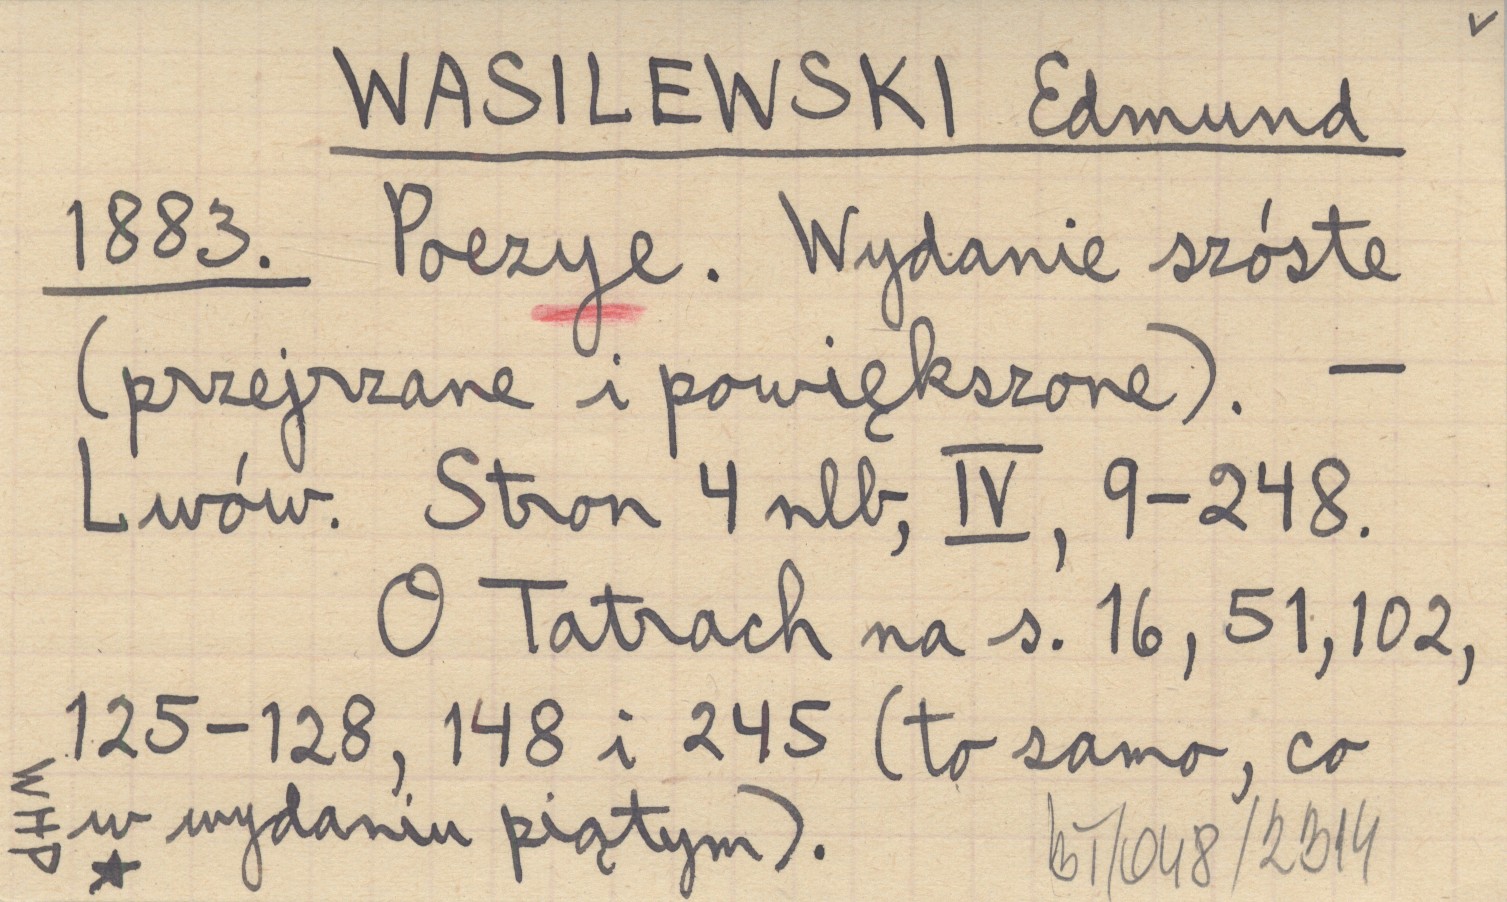 WASILEWSKI Edmund
1883. Poezye. Wydanie szóste
(przejrzane i powiększone). —
Lwów. Stron 4 nlb, IV, 9-248.
O Tatrach na s. 16, 51, 102,
125-128, 148 i 245 (to samo, co
w wydaniu piątym).
WHP
BT/048/2314